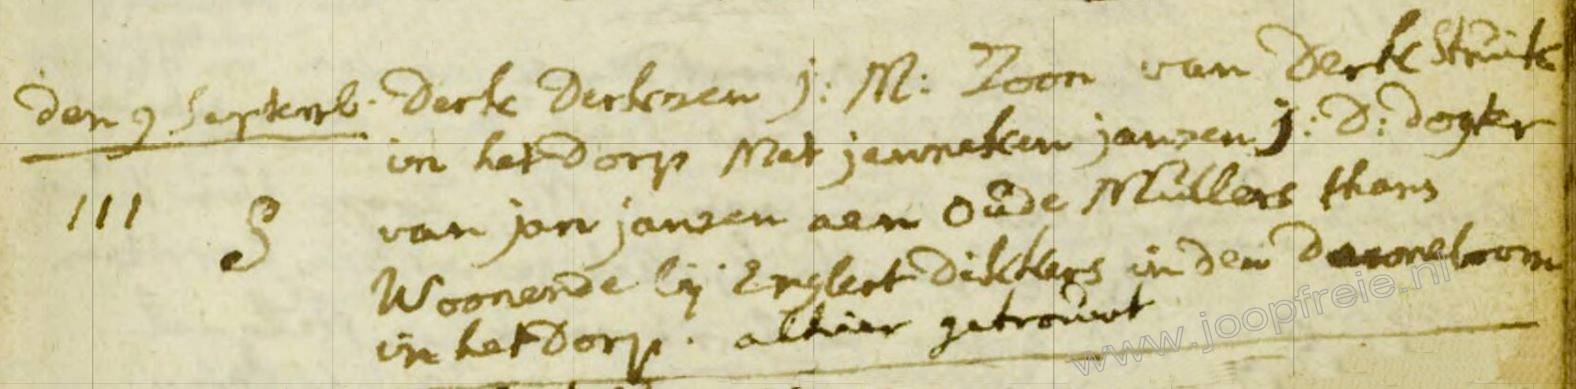 den 9 Septemb. Derk Derksen j: M: Zoon van Derk Struik
in het Dorp Met jenneken jansen j: D: dogter
van jan jansen aen Oude Mullers thans
111 3
Woonende bij Englert Dikkers in den Danneboom
in het Dorp. alhier getrouwt
www.joopfreie.nl